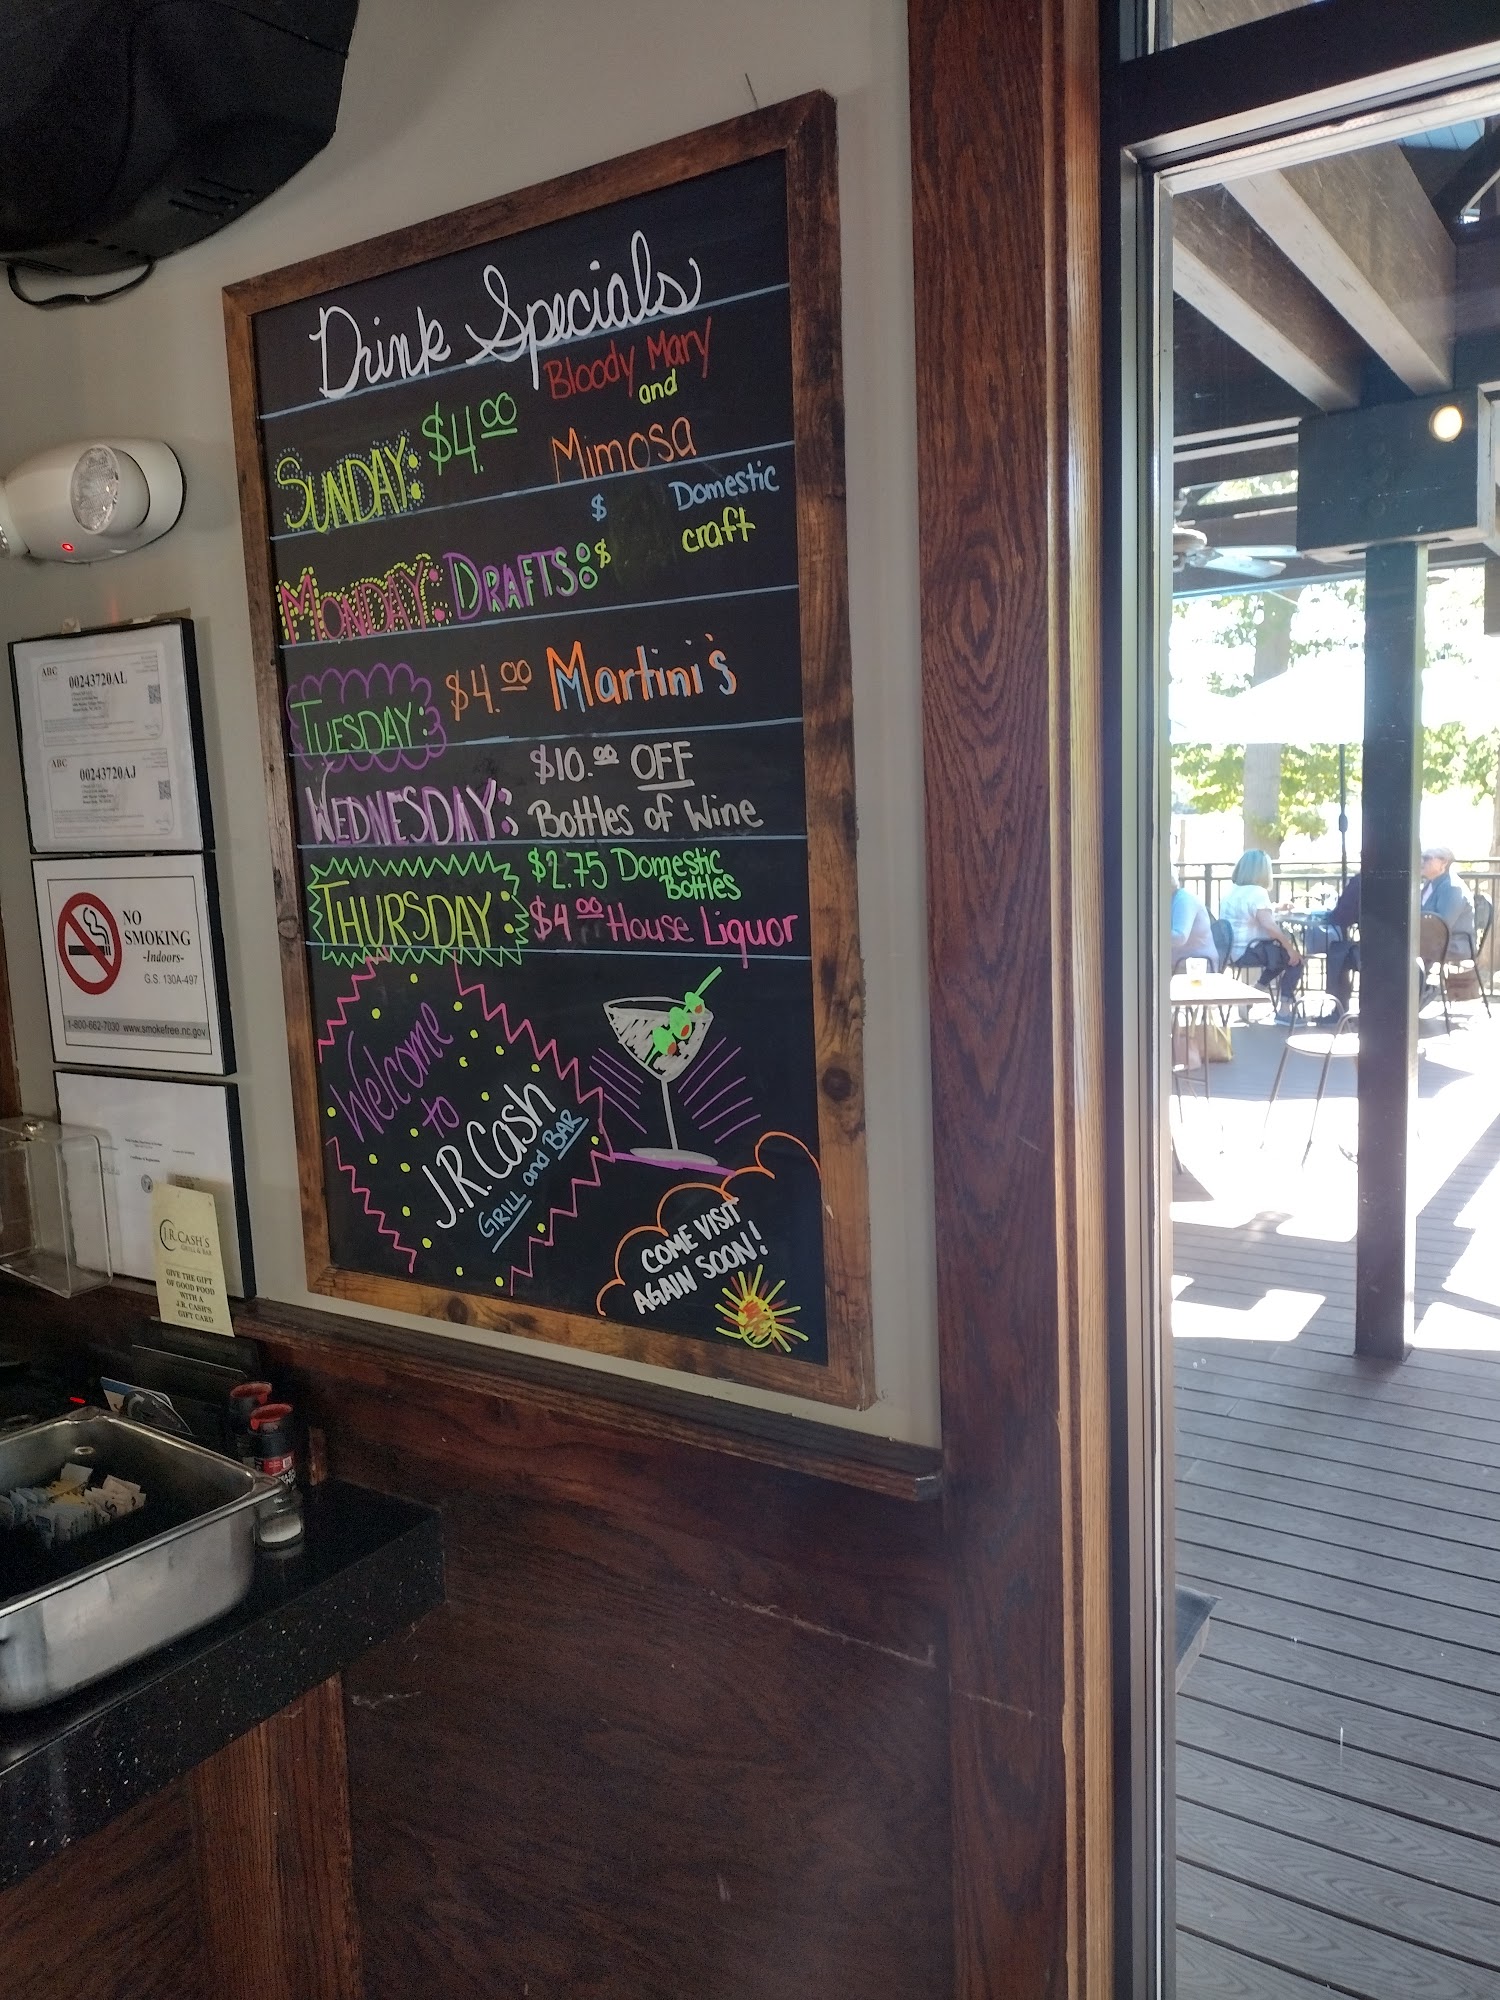 Drink Specials
SUNDAY: $4.00 Bloody Mary
and
Mimosa
MONDAY: DRAFTS: $ Domestic
$ craft
TUESDAY: $4.00 Martini's
WEDNESDAY: $10.00 OFF
Bottles of Wine
THURSDAY $2.75 Domestic
Bottles
$4.00 House Liquor
Welcome
to
J.R. Cash
GRILL and BAR
COME VISIT
AGAIN SOON!
ABC
00243720AL
ABC
00243720AJ
NO
SMOKING
-Indoors-
G.S. 130A-497
1-800-662-7030 www.smokefree.nc.gov
J.R. CASH'S
GRILL & BAR
GIVE THE GIFT
OF GOOD FOOD
WITH A
J.R. CASH'S
GIFT CARD